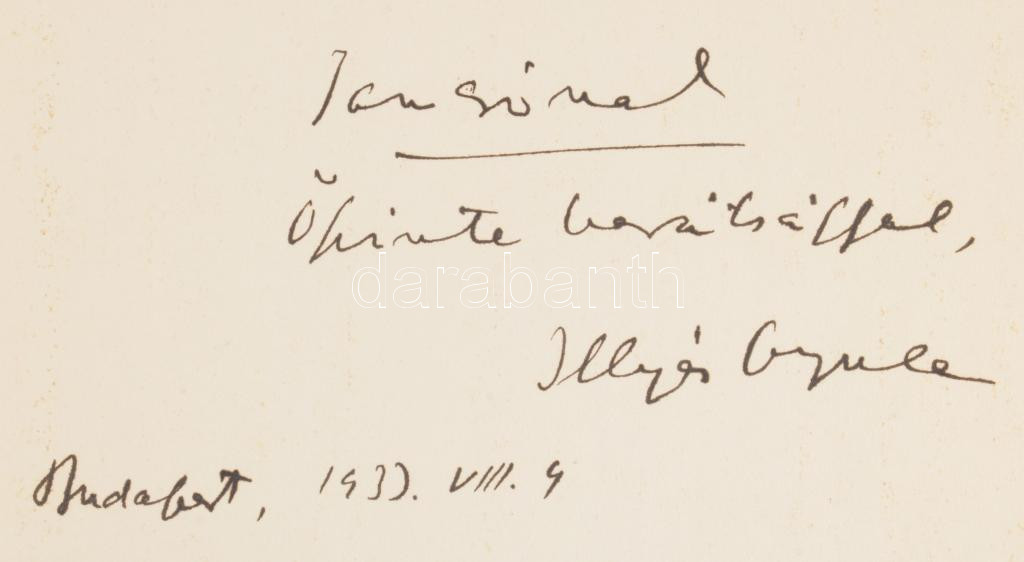 Jancsónak
Őszinte barátsággal,
darabanth
Illyés Gyula
Budapest, 1933. VIII. 9